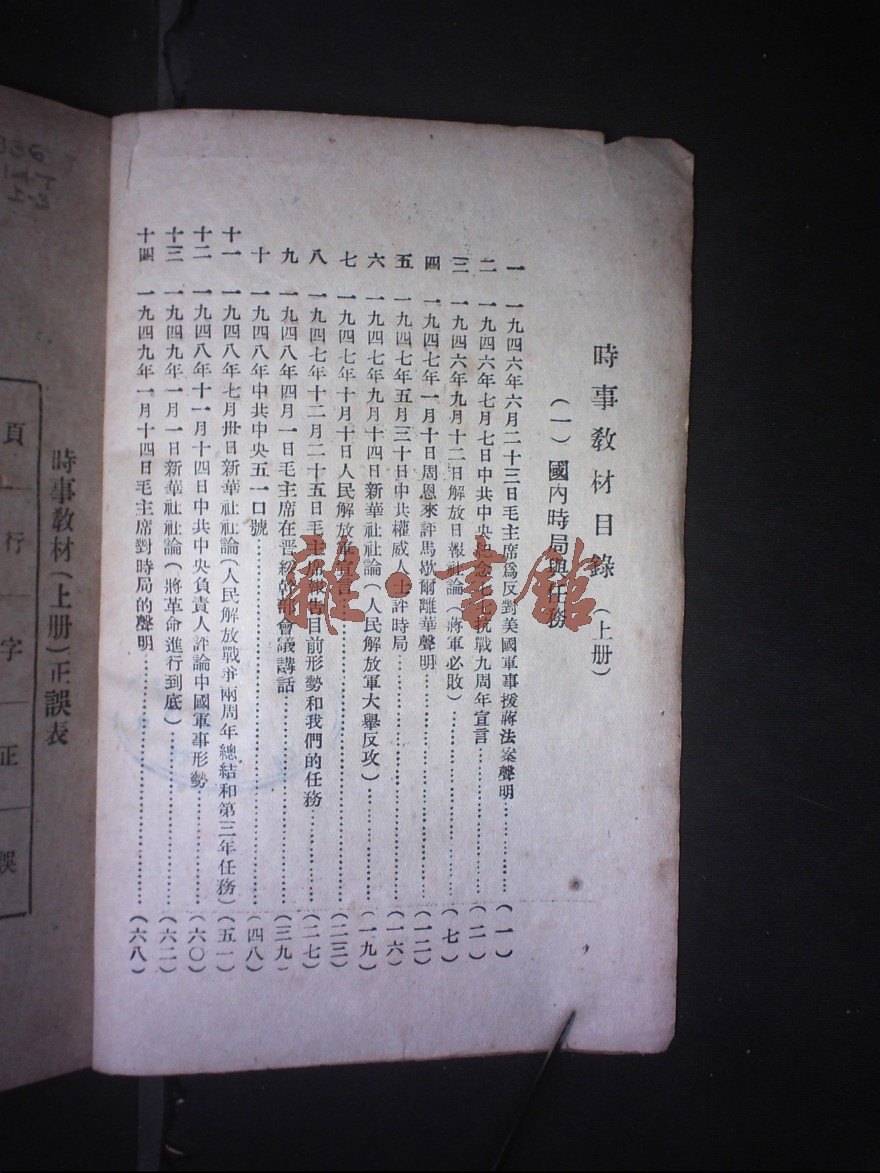 時事教材目錄(上册)
(一)國內時局與任務
一 一九四六年六月二十三日毛主席爲反對美國軍事援蔣法案聲明(一)
二 一九四六年七月七日中共中央紀念七七抗戰九周年宣言(二)
三 一九四六年九月十二日解放日報社論(蔣軍必敗)(七)
四 一九四七年一月十日周恩來評馬歇爾離華聲明(一二)
五 一九四七年五月三十日中共權威人士評時局(一六)
六 一九四七年九月十四日新華社社論(人民解放軍大舉反攻)(一九)
七 一九四七年十月十日人民解放軍宣言(二三)
八 一九四七年十二月二十五日毛主席報告目前形勢和我們的任務(二七)
九 一九四八年四月一日毛主席在晋綏幹部會議講話(三九)
十 一九四八年中共中央五一口號(四八)
十一 一九四八年七月卅日新華社社論(人民解放戰爭兩周年總結和第三年任務)(五一)
十二 一九四八年十一月十四日中共中央負責人評論中國軍事形勢(六〇)
十三 一九四九年一月一日新華社社論(將革命進行到底)(六二)
十四 一九四九年一月十四日毛主席對時局的聲明(六八)
時事教材(上册)正誤表
頁
行
字
正
誤
雜·書館